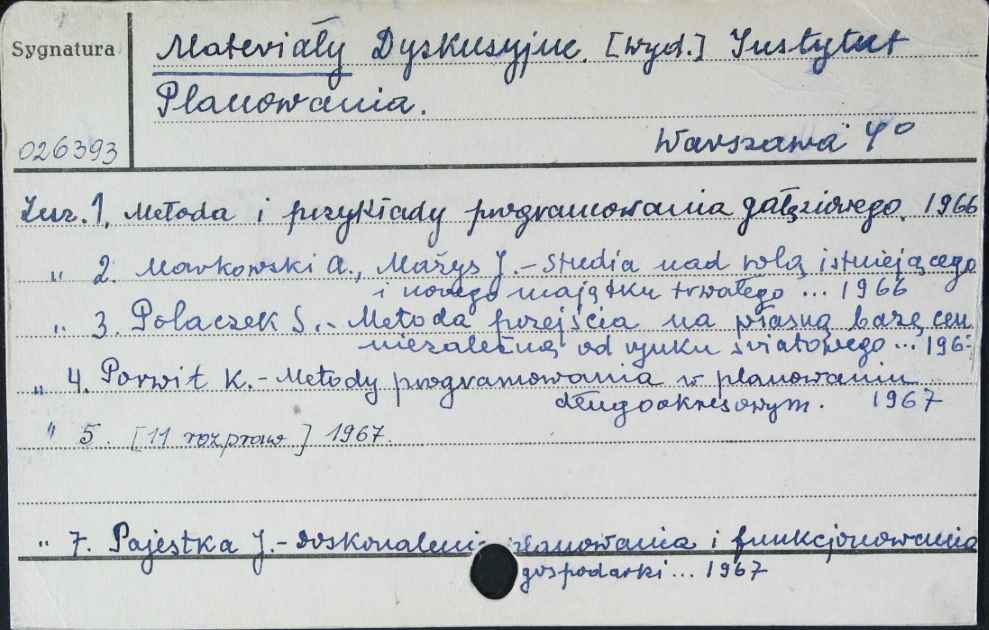 Sygnatura
Materiały Dyskusyjne. [wyd.] Instytut
Planowania.
026393
Warszawa 4°
Zesz. 1. Metoda i przykłady programowania gałęziowego. 1966
" 2. Markowski A., Małys J. - Studia nad rolą istniejącego
i nowego majątku trwałego ... 1966
" 3. Polaczek S. - Metoda przejścia na własną bazę cen
niezależną od rynku światowego ... 196
" 4. Porwit K. - Metody programowania w planowaniu
długookresowym. 1967
" 5. [11 rozpraw] 1967.
" 7. Pajestka J. - Doskonaleni planowania i funkcjonowania
gospodarki ... 1967